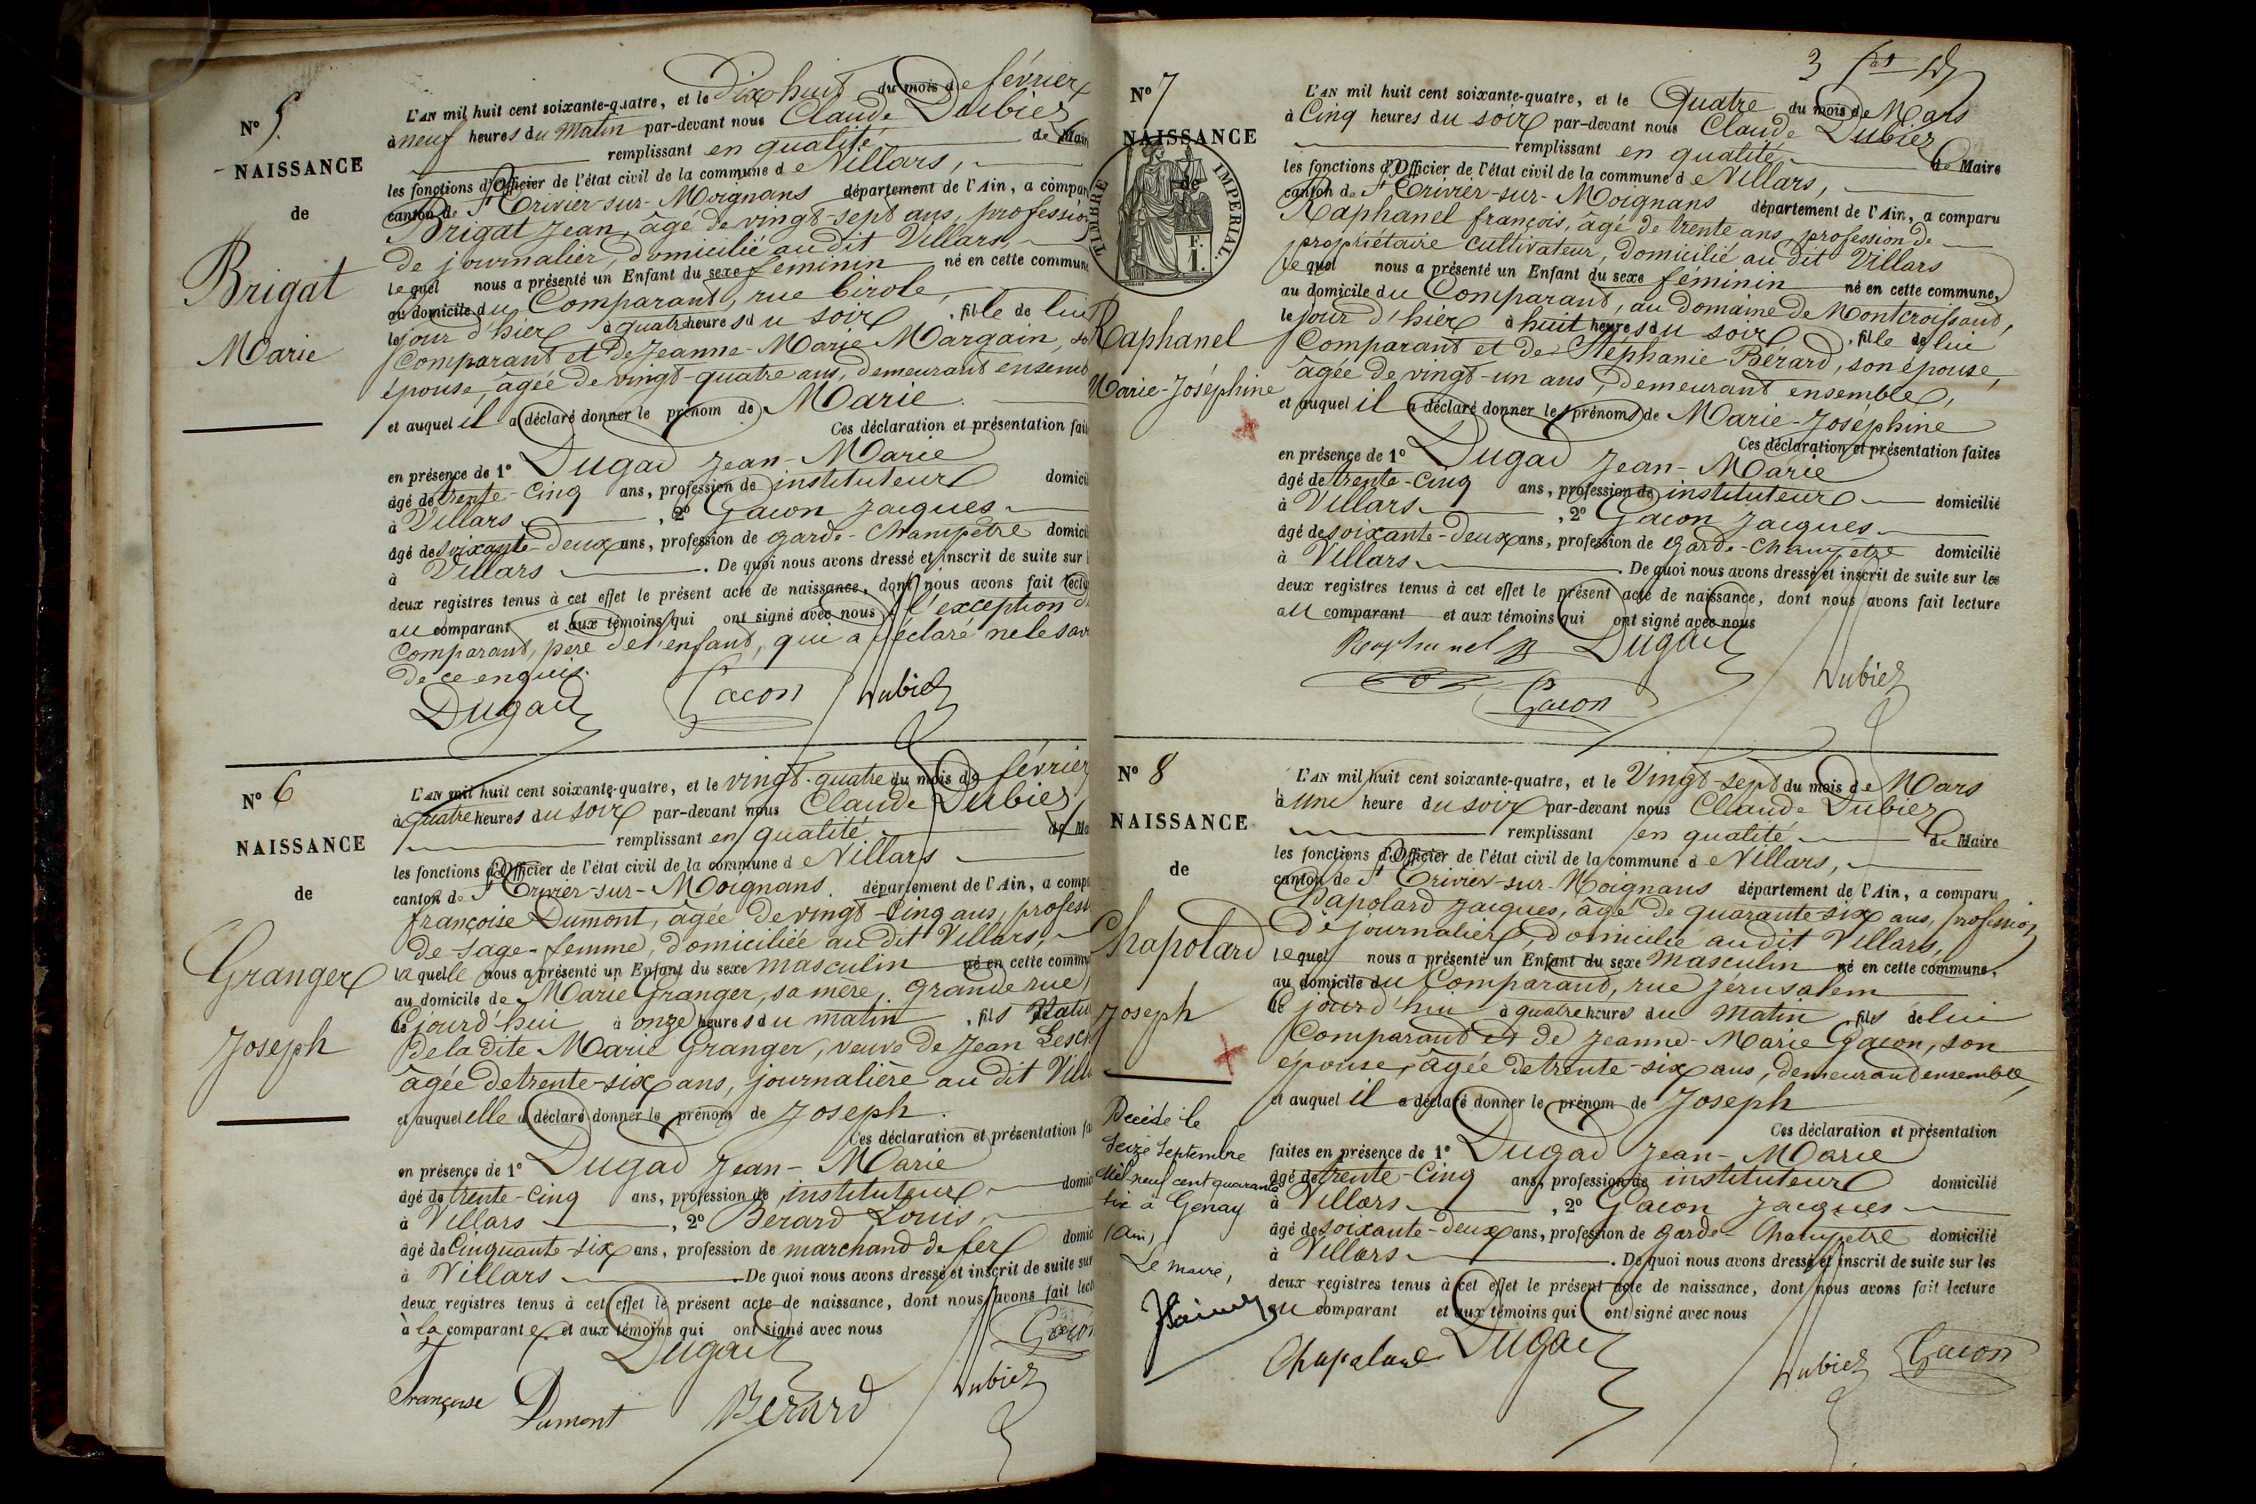 N° 5.
NAISSANCE
de
Brigat
Marie
L'AN mil huit cent soixante-quatre, et le Dix huit du mois de février
à neuf heures du Matin par-devant nous Claude Dubiez
remplissant en qualité de Mair
les fonctions d'Officier de l'état civil de la commune de Villars,
canton de St Trivier-sur-Moignans département de l'Ain, a compar
Brigat Jean, âgé de vingt-sept ans, profession
de journalier, domicilié au dit Villars,
lequel nous a présenté un Enfant du sexe féminin né en cette commune
au domicile du Comparant, rue
le jour d'hier à quatre heures du soir, fille de lui
Comparant et de Jeanne-Marie Margain, so
épouse, âgée de vingt-quatre ans, demeurant ensemb
et auquel il a déclaré donner le prénom de Marie.
Ces déclaration et présentation fait
en présence de 1° Dugad Jean-Marie
âgé de trente-cinq ans, profession de instituteur domicil
à Villars, 2° Gacon Jacques
âgé de soixante-deux ans, profession de garde-champêtre domicil
à Villars. De quoi nous avons dressé et inscrit de suite sur l
deux registres tenus à cet effet le présent acte de naissance, dont nous avons fait lectu
au comparant et aux témoins qui ont signé avec nous à l'exception du
Comparant, père de l'enfant, qui a déclaré ne le savo
de ce enquis.
Dugad Gacon Dubiez
N° 6
NAISSANCE
de
Granger
Joseph
L'AN mil huit cent soixante-quatre, et le vingt-quatre du mois de février
à quatre heures du soir par-devant nous Claude Dubiez
remplissant en qualité de Ma
les fonctions d'Officier de l'état civil de la commune de Villars
canton de St Trivier-sur-Moignans. département de l'Ain, a compa
françoise Dumont, âgée de vingt-cinq ans, profess
de sage-femme, domiciliée au dit Villars,
laquelle nous a présenté un Enfant du sexe masculin né en cette commu
au domicile de Marie Granger, sa mère, grande rue,
ce jourd'hui à onze heures du matin, fils Natu
de la dite Marie Granger, veuve de Jean Lesch
âgée de trente-six ans, journalière au dit Villa
et auquel elle a déclaré donner le prénom de Joseph.
Ces déclaration et présentation fa
en présence de 1° Dugad Jean-Marie
âgé de trente-cinq ans, profession de instituteur domic
à Villars, 2° Bérard Louis,
âgé de Cinquante-six ans, profession de marchand de fer domic
à Villars. De quoi nous avons dressé et inscrit de suite sur
deux registres tenus à cet effet le présent acte de naissance, dont nous avons fait lect
à la comparante et aux témoins qui ont signé avec nous
Dugad
Françoise Dumont Bérard Dubiez
3
N° 7
NAISSANCE
de
TIMBRE IMPERIAL.
1 F.
Raphanel
Marie-Joséphine
L'AN mil huit cent soixante-quatre, et le Quatre du mois de Mars
à Cinq heures du soir par-devant nous Claude Dubiez
remplissant en qualité de Maire
les fonctions d'Officier de l'état civil de la commune de Villars,
canton de St Trivier-sur-Moignans département de l'Ain, a comparu
Raphanel françois, âgé de trente ans, profession de
propriétaire cultivateur, domicilié au dit Villars
lequel nous a présenté un Enfant du sexe féminin né en cette commune,
au domicile du Comparant, au domaine de Montcroissant,
le jour d'hier à huit heures du soir, fille de lui
Comparant et de Stéphanie Bérard, son épouse,
âgée de vingt-un ans, demeurant ensemble,
et auquel il a déclaré donner les prénoms de Marie-Joséphine
Ces déclaration et présentation faites
en présence de 1° Dugad Jean-Marie
âgé de trente-cinq ans, profession de instituteur domicilié
à Villars, 2° Gacon Jacques
âgé de soixante-deux ans, profession de garde-champêtre domicilié
à Villars. De quoi nous avons dressé et inscrit de suite sur les
deux registres tenus à cet effet le présent acte de naissance, dont nous avons fait lecture
au comparant et aux témoins qui ont signé avec nous
Raphanel Dugad
Gacon Dubiez
N° 8
NAISSANCE
de
Chapolard
Joseph
Décédé le
seize Septembre
mil neuf cent quarante
six à Genay
(Ain)
Le maire,
L'AN mil huit cent soixante-quatre, et le Vingt-sept du mois de Mars
à une heure du soir par-devant nous Claude Dubiez
remplissant en qualité de Maire
les fonctions d'Officier de l'état civil de la commune de Villars,
canton de St Trivier-sur-Moignans département de l'Ain, a comparu
Chapolard Jacques, âgé de quarante six ans, profession
de journalier, domicilié au dit Villars,
lequel nous a présenté un Enfant du sexe Masculin né en cette commune,
au domicile du Comparant, rue Jérusalem
ce jourd'hui à quatre heures du Matin, fils de lui
Comparant et de Jeanne-Marie Gacon, son
épouse, âgée de trente-six ans, demeurant ensemble,
et auquel il a déclaré donner le prénom de Joseph
Ces déclaration et présentation
faites en présence de 1° Dugad Jean-Marie
âgé de trente-cinq ans, profession de instituteur domicilié
à Villars, 2° Gacon Jacques
âgé de soixante-deux ans, profession de garde-champêtre domicilié
à Villars. De quoi nous avons dressé et inscrit de suite sur les
deux registres tenus à cet effet le présent acte de naissance, dont nous avons fait lecture
au comparant et aux témoins qui ont signé avec nous
Chapolard Dugad Dubiez Gacon